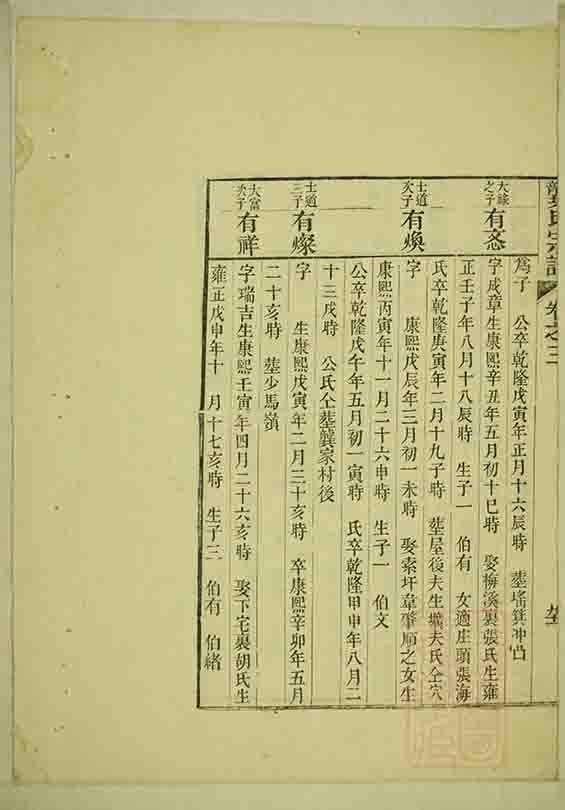 龔氏宗譜 卷之三
為子 公卒乾隆戊寅年正月十六辰時 塟塘箕冲凸
大緣之子 有文 字成章生康熙辛丑年五月初十巳時 娶梅溪裏張氏生雍
正壬子年八月十八辰時 生子一 伯有 女適庄頭張海
氏卒乾隆庚寅年二月十九子時 塟屋後夫生壙夫氏仝穴
士道次子 有煥 字 康熙戊辰年三月初一未時 娶索圩韋肇順之女生
康熙丙寅年十一月二十六申時 生子一 伯文
公卒乾隆戊午年五月初一寅時 氏卒乾隆甲申年八月二
十三戌時 公氏仝塟龔家村後
士道三子 有燦 字 生康熙戊寅年二月三十亥時 卒康熙辛卯年五月
二十亥時 塟少馬嶺
大富次子 有祥 字瑞吉生康熙壬寅年四月二十六亥時 娶下宅裏胡氏生
雍正戊申年十 月十七亥時 生子三 伯有 伯緒